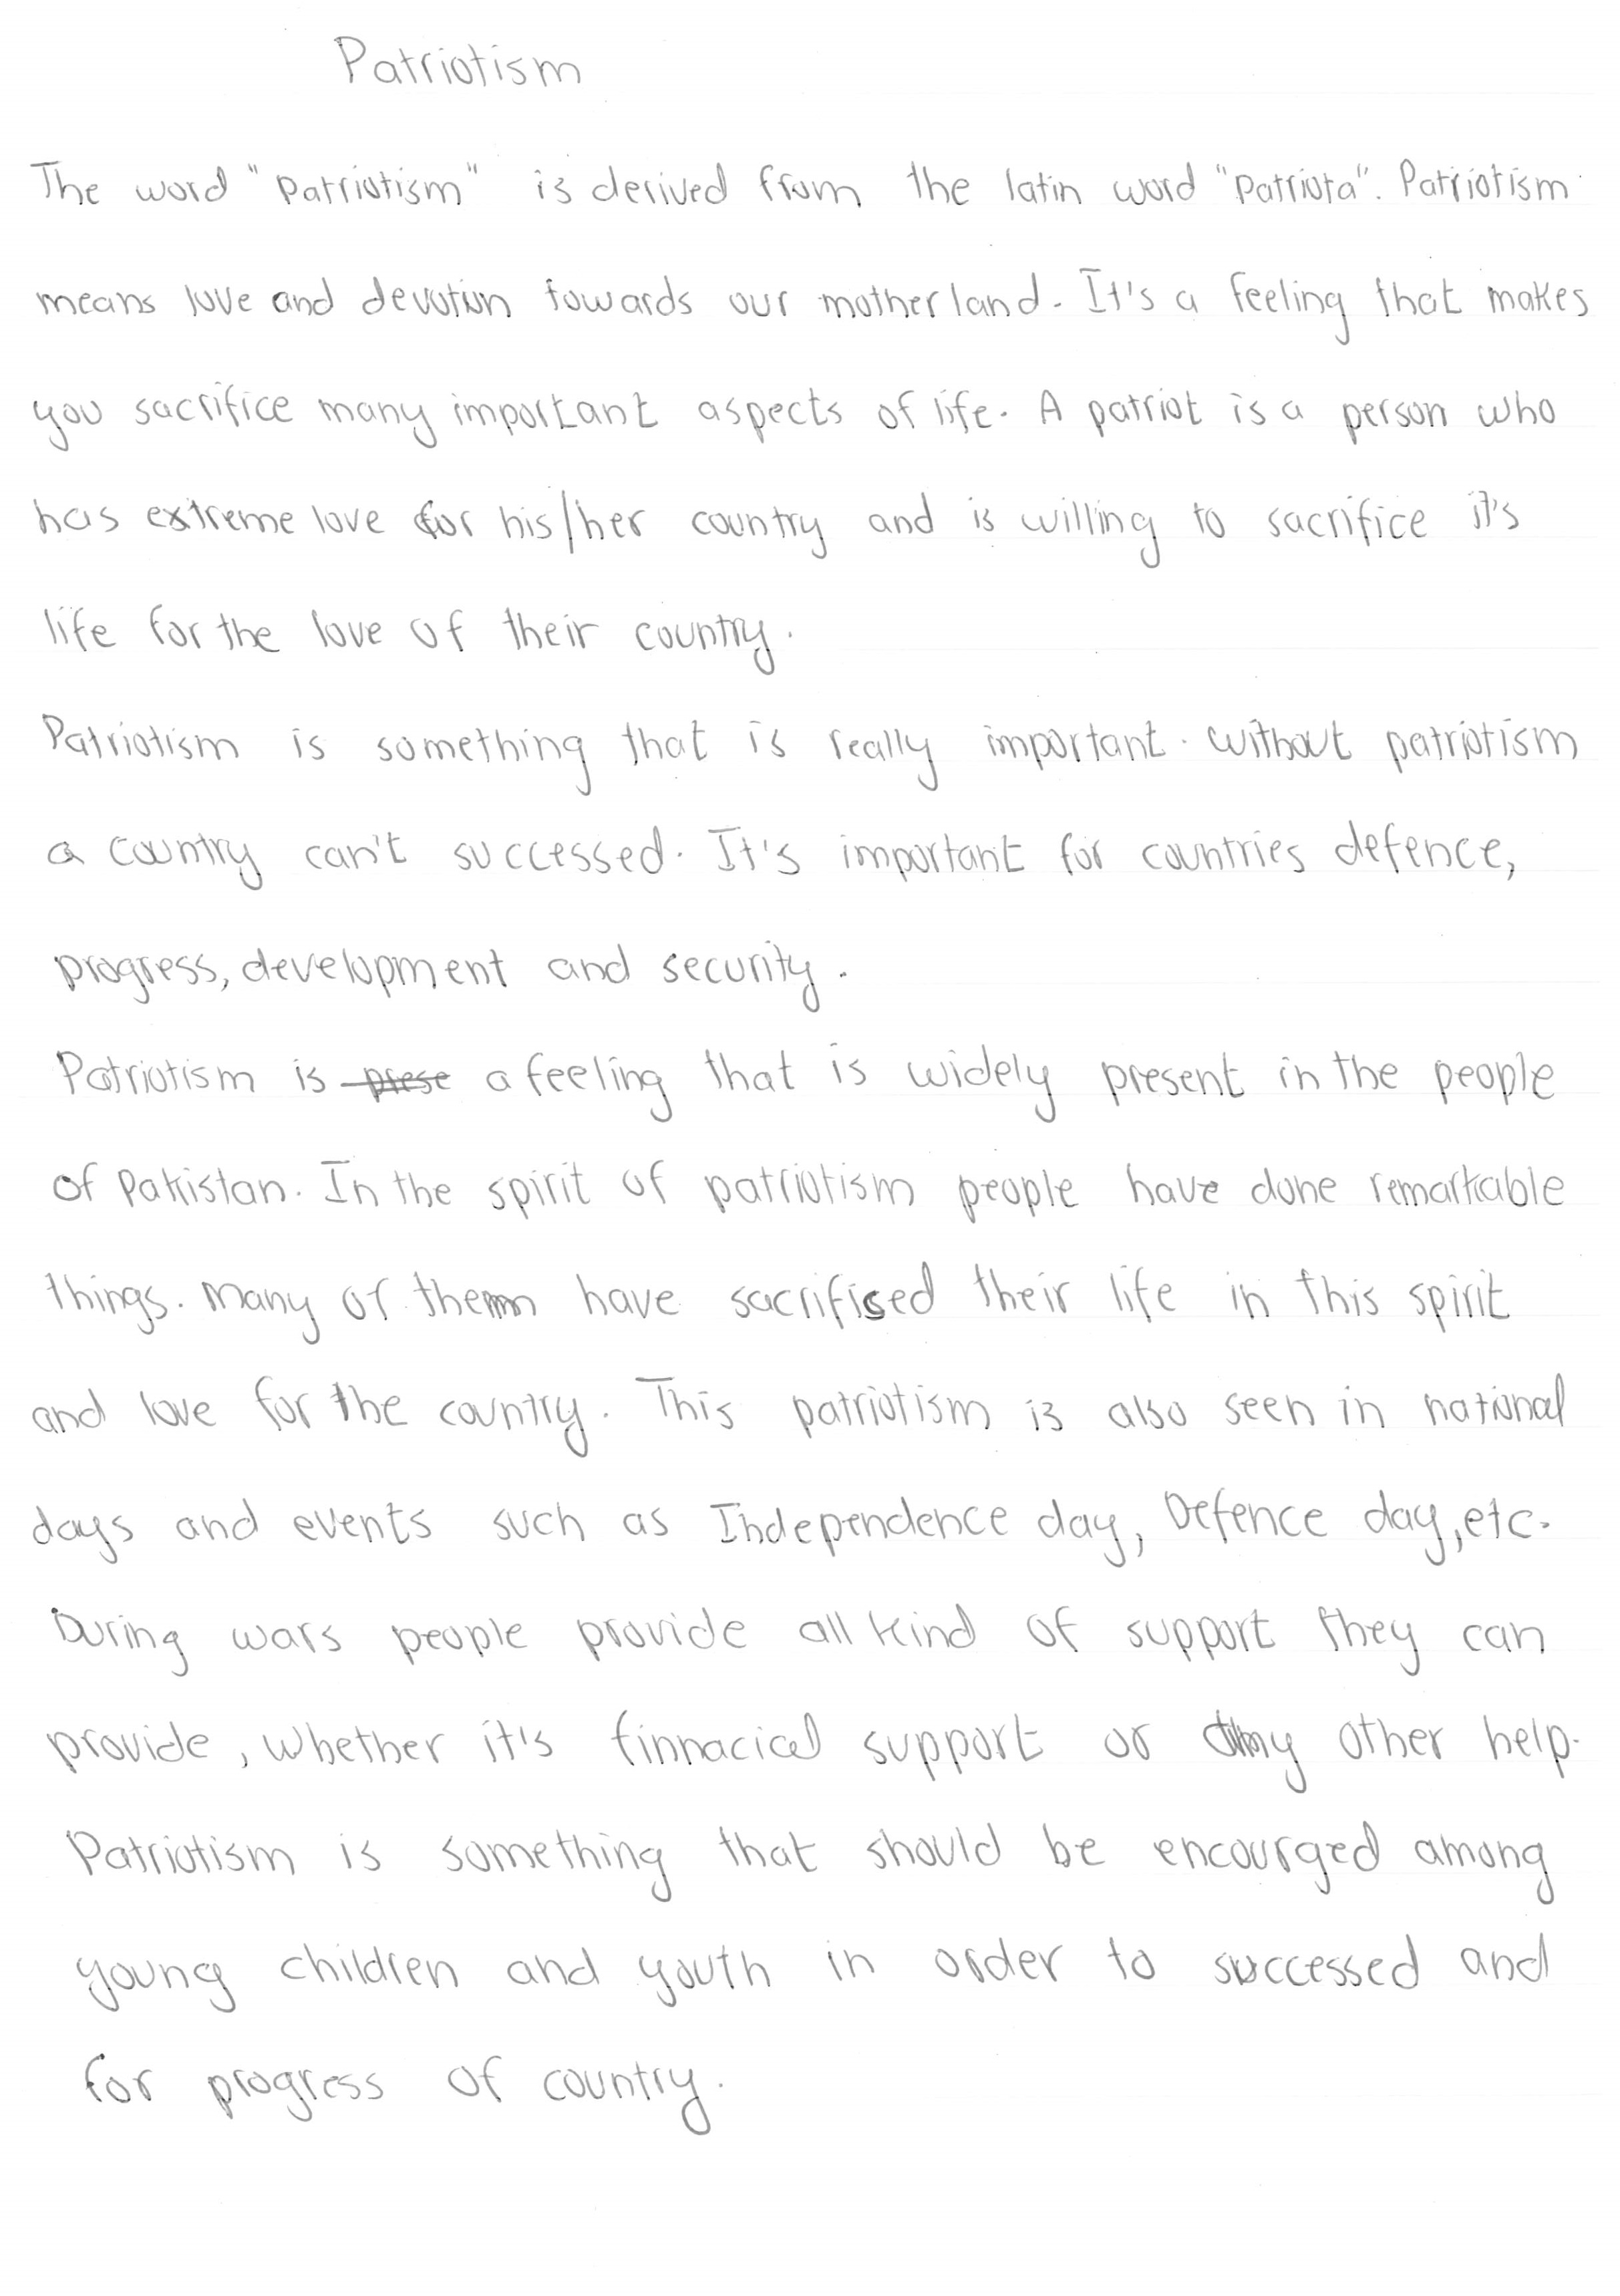 Patriotism
The word "Patriotism" is derived from the latin word "Patriota". Patriotism
means love and devotion towards our motherland. It's a feeling that makes
you sacrifice many important aspects of life. A patriot is a person who
has extreme love for his/her country and is willing to sacrifice it's
life for the love of their country.
Patriotism is something that is really important. without patriotism
a country can't successed. It's important for countries defence,
progress, development and security.
Patriotism is prese a feeling that is widely present in the people
of Pakistan. In the spirit of patriotism people have done remarkable
things. Many of them have sacrificed their life in this spirit
and love for the country. This patriotism is also seen in national
days and events such as Independence day, Defence day, etc.
During wars people provide all kind of support they can
provide, whether it's finnacial support or any other help.
Patriotism is something that should be encourged among
young children and youth in order to successed and
for progress of country.